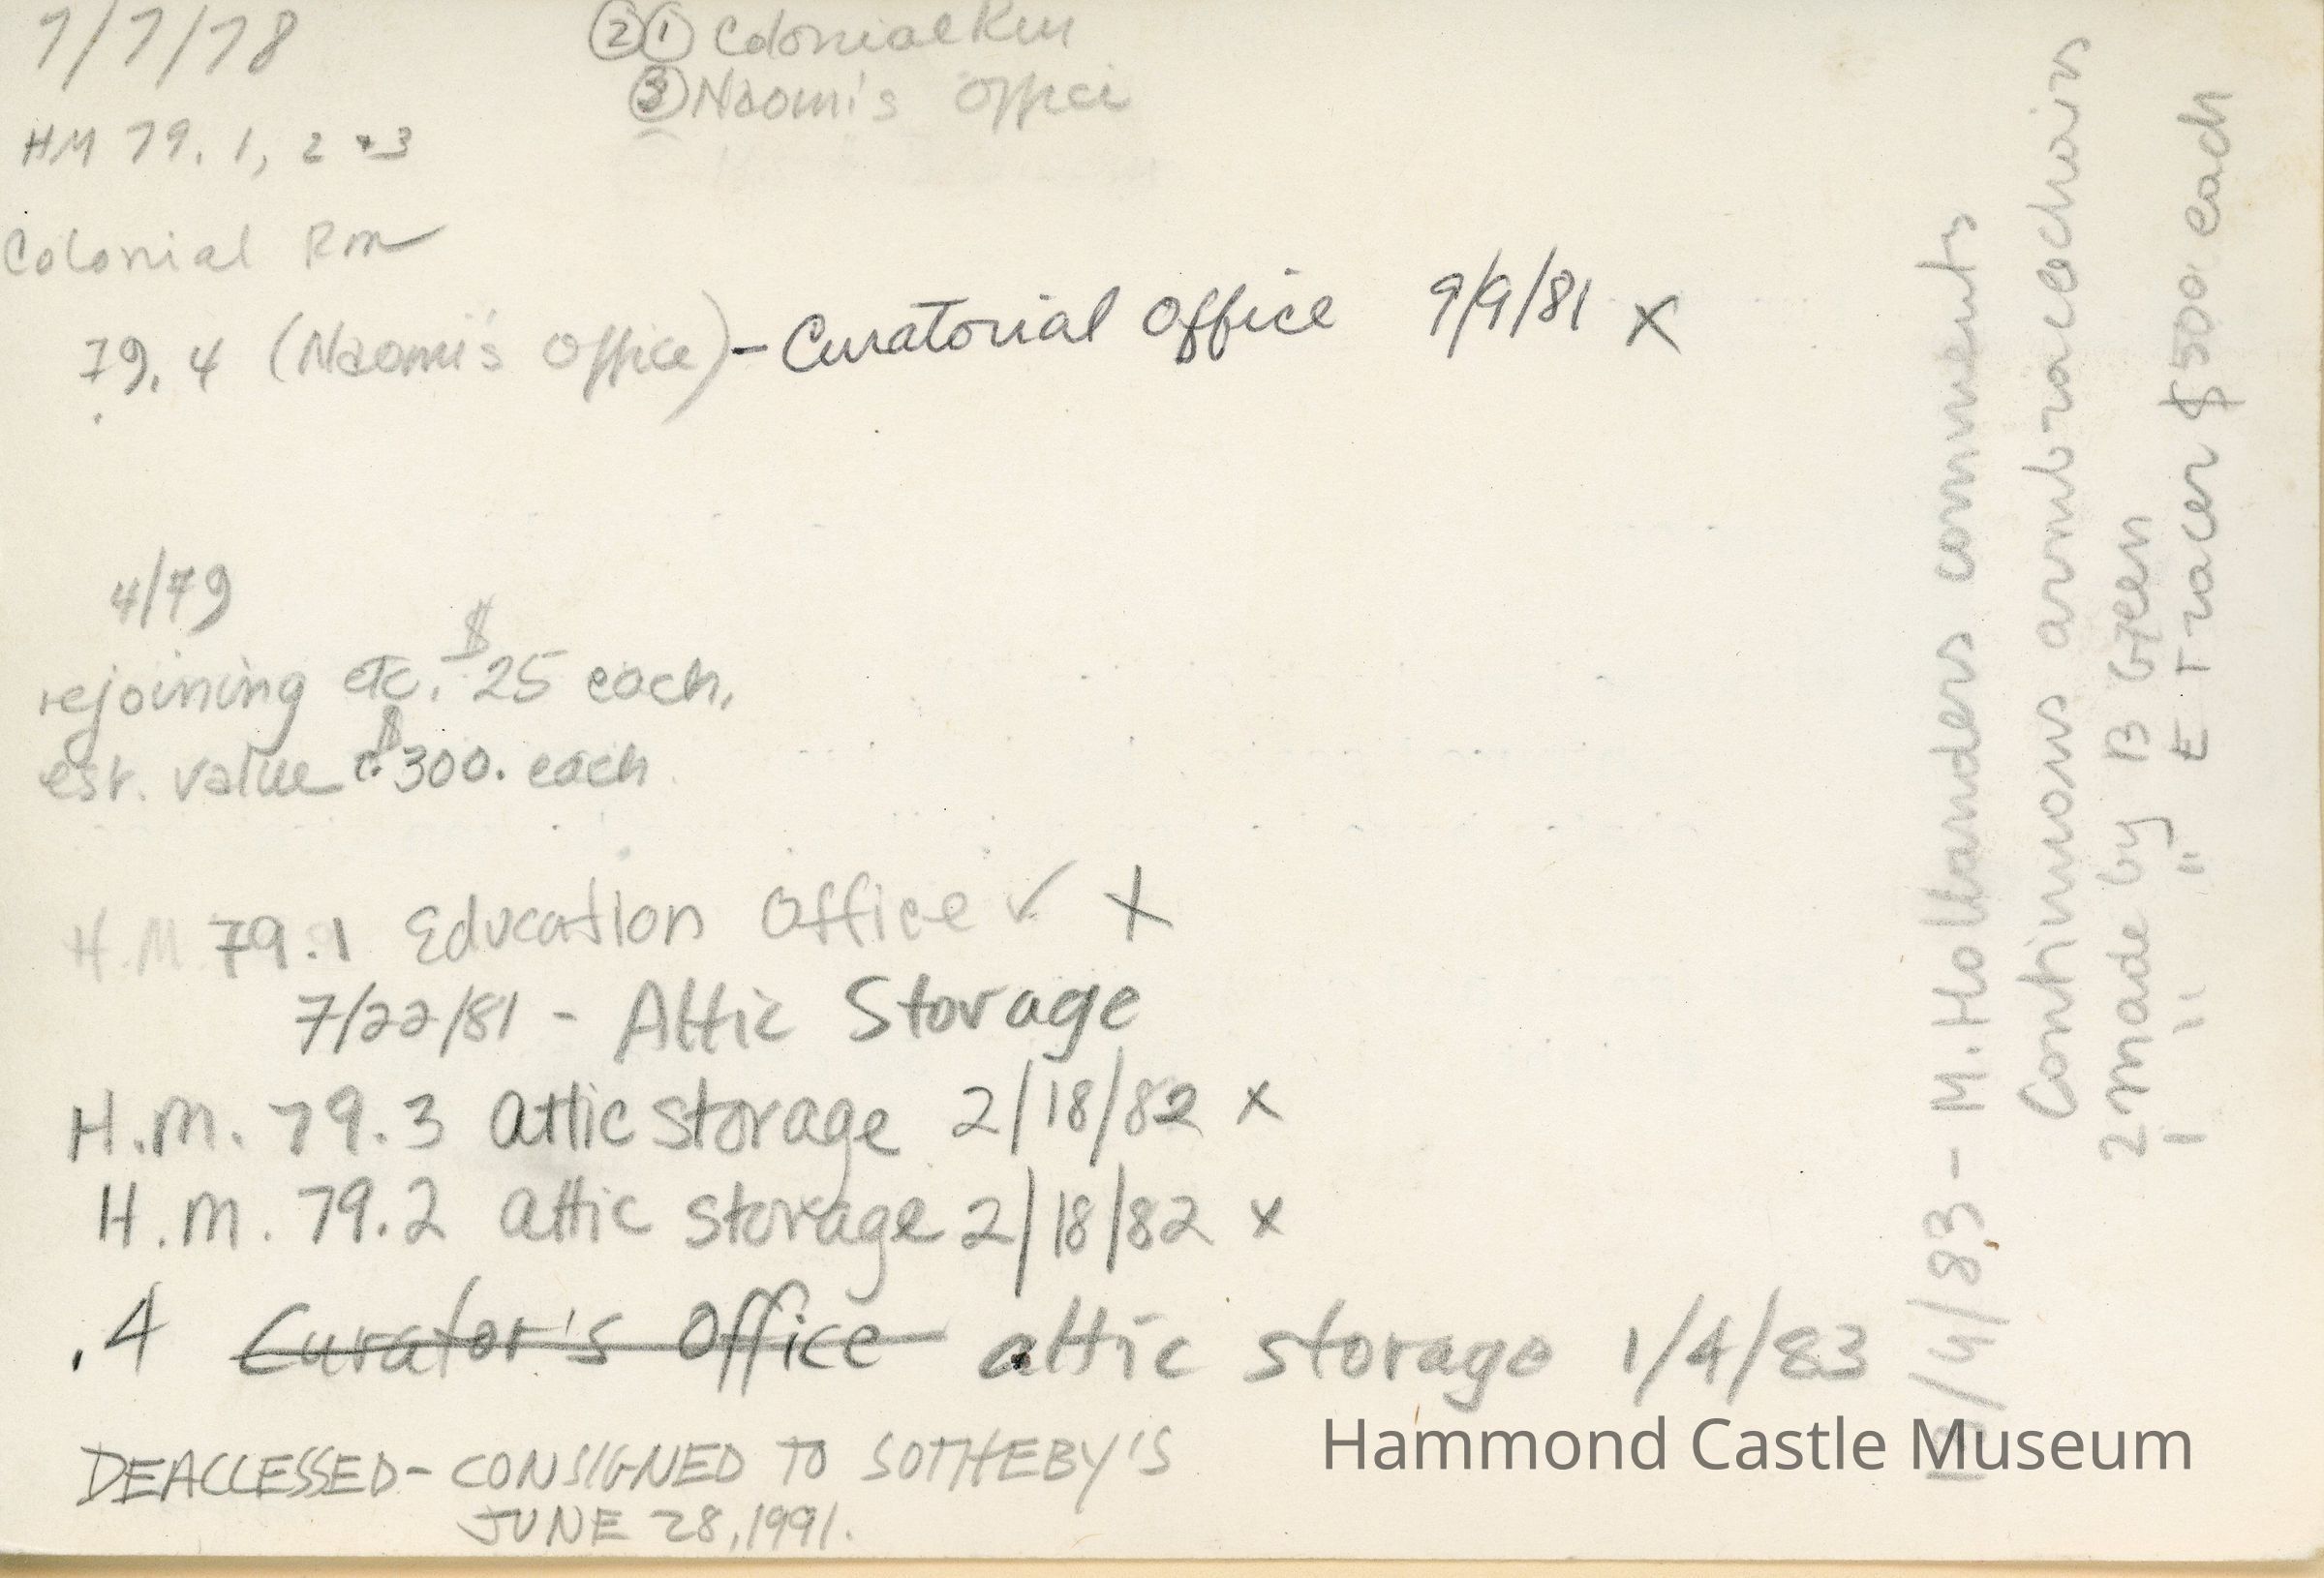 7/7/78
②① Colonial Rm
③ Naomi's Office
HM 79. 1, 2 + 3
Colonial Rm
79. 4 (Naomi's Office) - Curatorial Office 9/9/81 x
4/79
rejoining etc. $25 each,
est. value c. $300. each
H.M. 79.1 Education Office ✓ X
7/22/81 - Attic Storage
H.m. 79.3 attic storage 2/18/82 x
H.m. 79.2 attic storage 2/18/82 x
.4 Curator's Office attic storage 1/4/83
DEACCESSED - CONSIGNED TO SOTHEBY'S
JUNE 28, 1991.
/4/83 - M. Hollanders comments
Continuous armbrace chairs
2 made by B Green
1 " " E Tracer $500. each
Hammond Castle Museum